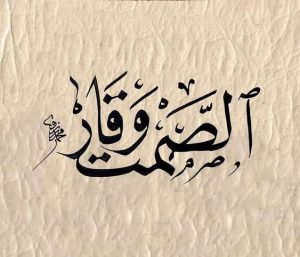 ٱلصَّمت وَقَار